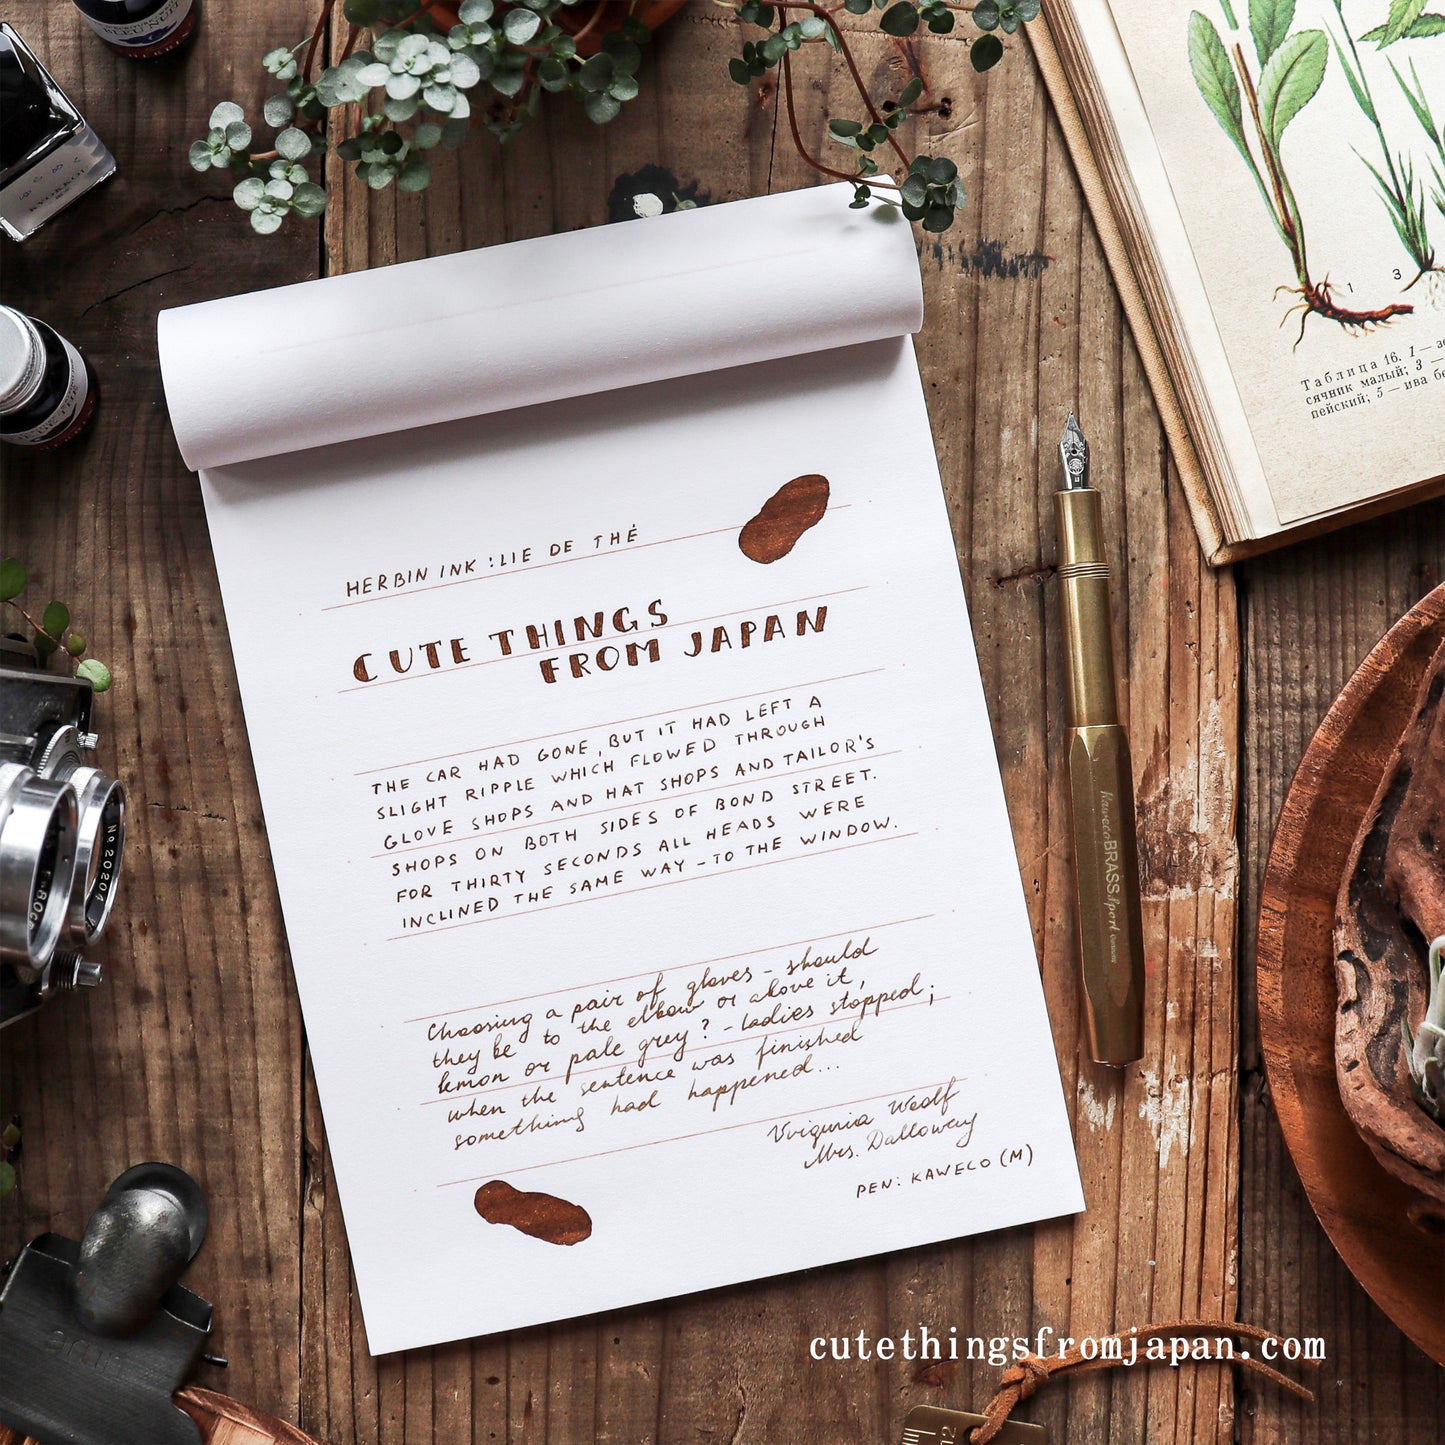 BLEU NUIT
KYOKAGI
HERBIN INK : LIE DE THÉ
CUTE THINGS
FROM JAPAN
THE CAR HAD GONE, BUT IT HAD LEFT A
SLIGHT RIPPLE WHICH FLOWED THROUGH
GLOVE SHOPS AND HAT SHOPS AND TAILOR'S
SHOPS ON BOTH SIDES OF BOND STREET.
FOR THIRTY SECONDS ALL HEADS WERE
INCLINED THE SAME WAY - TO THE WINDOW.
Choosing a pair of gloves - should
they be to the elbow or above it,
lemon or pale grey? - ladies stopped;
when the sentence was finished
something had happened...
Virginia Woolf
Mrs. Dalloway
PEN: KAWECO (M)
Kaweco BRASS Sport
1
3
Таблица 16. 1 —
сячник малый; 3 —
пейский; 5 — ива
No.20204
cutethingsfromjapan.com
12